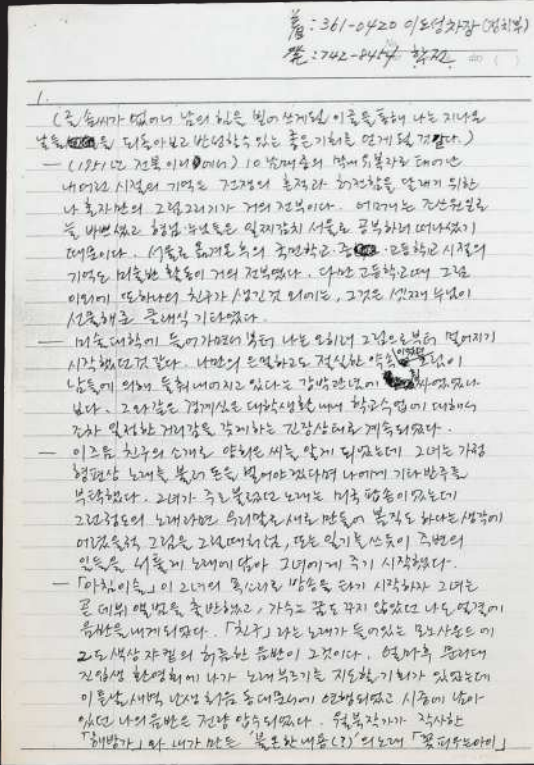 着:361-0420 이도성차장(정치부)
發:742-8454 학전
1.
(글 솜씨가 없어서 남의 힘을 빌어 쓰게될 이글을 통해 나는 지나온
날들을 되돌아보고 반성할수 있는 좋은기회를 얻게 될 것같다.)
— (1951년 전북 이리에서) 10남매중의 막내 유복자로 태어난
내 어린 시절의 기억은 전쟁의 흔적과 허전함을 달래기 위한
나 혼자만의 그림그리기가 거의 전부이다. 어머니는 조산원일로
늘 바쁘셨고 형님·누님들은 일찌감치 서울로 공부하러 떠나셨기
때문이다. 서울로 옮겨온 후의 국민학교·중·고등학교 시절의
기억도 미술반 활동이 거의 전부였다. 다만 고등학교때 그림
이외에 또하나의 친구가 생긴것 외에는, 그것은 셋째 누님이
선물해준 클래식 기타였다.
— 미술대학에 들어가면서 부터 나는 오히려 그림으로부터 멀어지기
시작했던것 같다. 나만의 은밀하고도 절실한 약속이었던 그림이
남들에 의해 들춰내어지고 있다는 강박관념에
보다. 그와같은 경계심은 대학생활 내내 학교수업에 대해서
조차 일정한 거리감을 갖게하는 긴장상태로 계속되었다.
— 이즈음 친구의 소개로 양희은 씨를 알게 되었는데 그녀는 가정
형편상 노래를 불러 돈을 벌어야겠다며 나에게 기타반주를
부탁했다. 그녀가 주로 불렀던 노래는 미국 팝송이었는데
그런정도의 노래라면 우리말로 새로 만들어 봄직도 하다는 생각에
어렸을적 그림을 그릴때처럼, 또는 일기를 쓰듯이 주변의
일들을 서툴게 노래에 담아 그녀에게 주기 시작했다.
— 「아침이슬」이 그녀의 목소리로 방송을 타기 시작하자 그녀는
곧 데뷔 앨범을 출반했고, 가수는 꿈도 꾸지 않았던 나도 얼결에
음반을 내게 되었다. 「친구」라는 노래가 들어있는 모노사운드에
2도색상 자켓의 허름한 음반이 그것이다. 얼마후 문리대
신입생 환영회에 나가 노래부르기를 지도할 기회가 있었는데
이튿날 새벽 난생 처음 동대문서에 연행되었고 시중에 남아
있던 나의 음반은 전량 압수되었다. 월북작가가 작사한
「해방가」와 내가 만든 '불온한 내용(?)'의 노래 「꽃피우는아이」